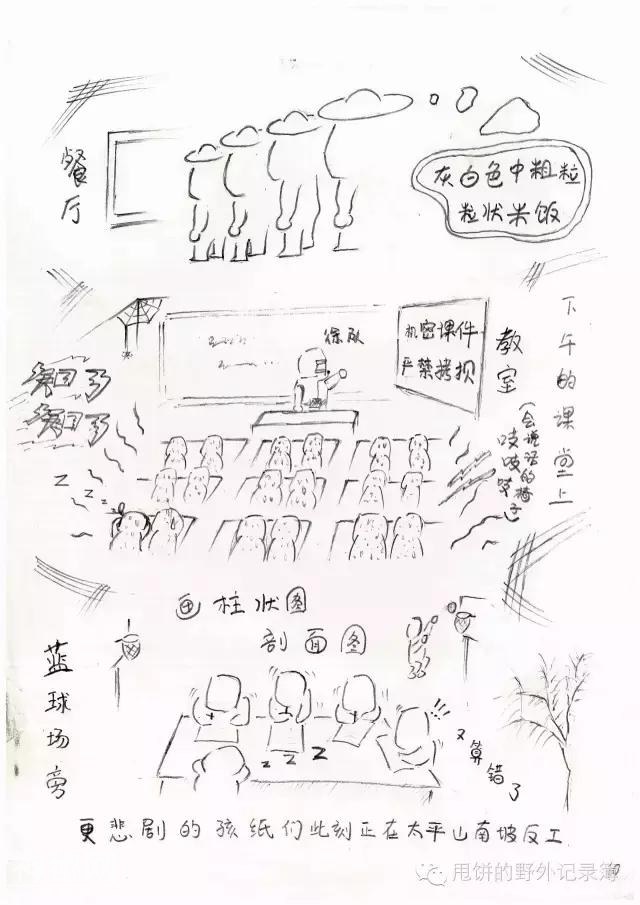 餐厅
灰白色中粗粒
粒状米饭
徐队
机密课件
严禁拷贝
教室
(会说话的椅子)
吱吱吱
下午的课堂上
知了
知了
z z z
画柱状图
剖面图
篮球场旁
z z z
又算错了
更悲剧的孩纸们此刻正在太平山南坡反工
甩饼的野外记录簿